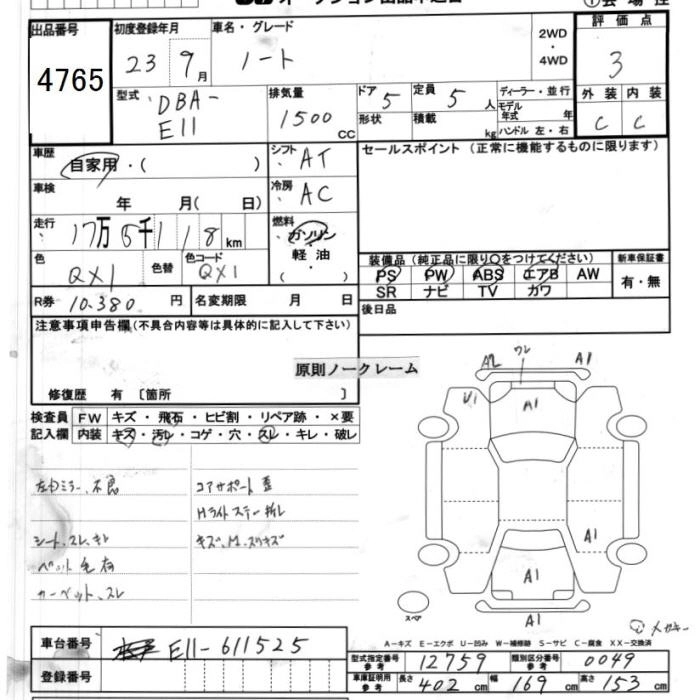 出品番号
4765
初度登録年月
23 9月
車名・グレード
ノート
2WD
・
4WD
評価点
3
外装 内装
C C
型式
DBA-
E11
排気量
1500 CC
ドア 5
定員 5 人
形状
積載 kg
ディーラー・並行
モデル年式 年
ハンドル 左・右
車歴
自家用・( )
シフト AT
セールスポイント (正常に機能するものに限ります)
車検
年 月( 日)
冷房 AC
走行
17万 5千 1 1 8 km
燃料
ガソリン
軽油
( ・ )
色
QX1
色替
色コード
QX1
装備品(純正品に限り○をつけてください)
PS PW ABS エアB AW
SR ナビ TV カワ
新車保証書
有・無
R券 10.380 円
名変期限 月 日
後日品
注意事項申告欄(不具合内容等は具体的に記入して下さい)
原則ノークレーム
修復歴 有 〔箇所 〕
検査員
記入欄
FW キズ・飛石・ヒビ割・リペア跡・×要
内装 キズ・汚レ・コゲ・穴・スレ・キレ・破レ
左ドミラー、不良
シート、スレ、キレ
ペット毛有
カーペット、スレ
コアサポート歪
Hライトステー折レ
キズ、凹、スリキズ
A2 ワレ A1
U1 A1
A1
A1
A1
スペア
メッキー
A-キズ E-エクボ U-凹み W-補修跡 S-サビ C-腐食 XX-交換済
車台番号
E11-611525
登録番号
型式指定番号
参考
12759
類別区分番号
参考
0049
車庫証明用
参考
長さ 402 cm 幅 169 cm 高さ 153 cm